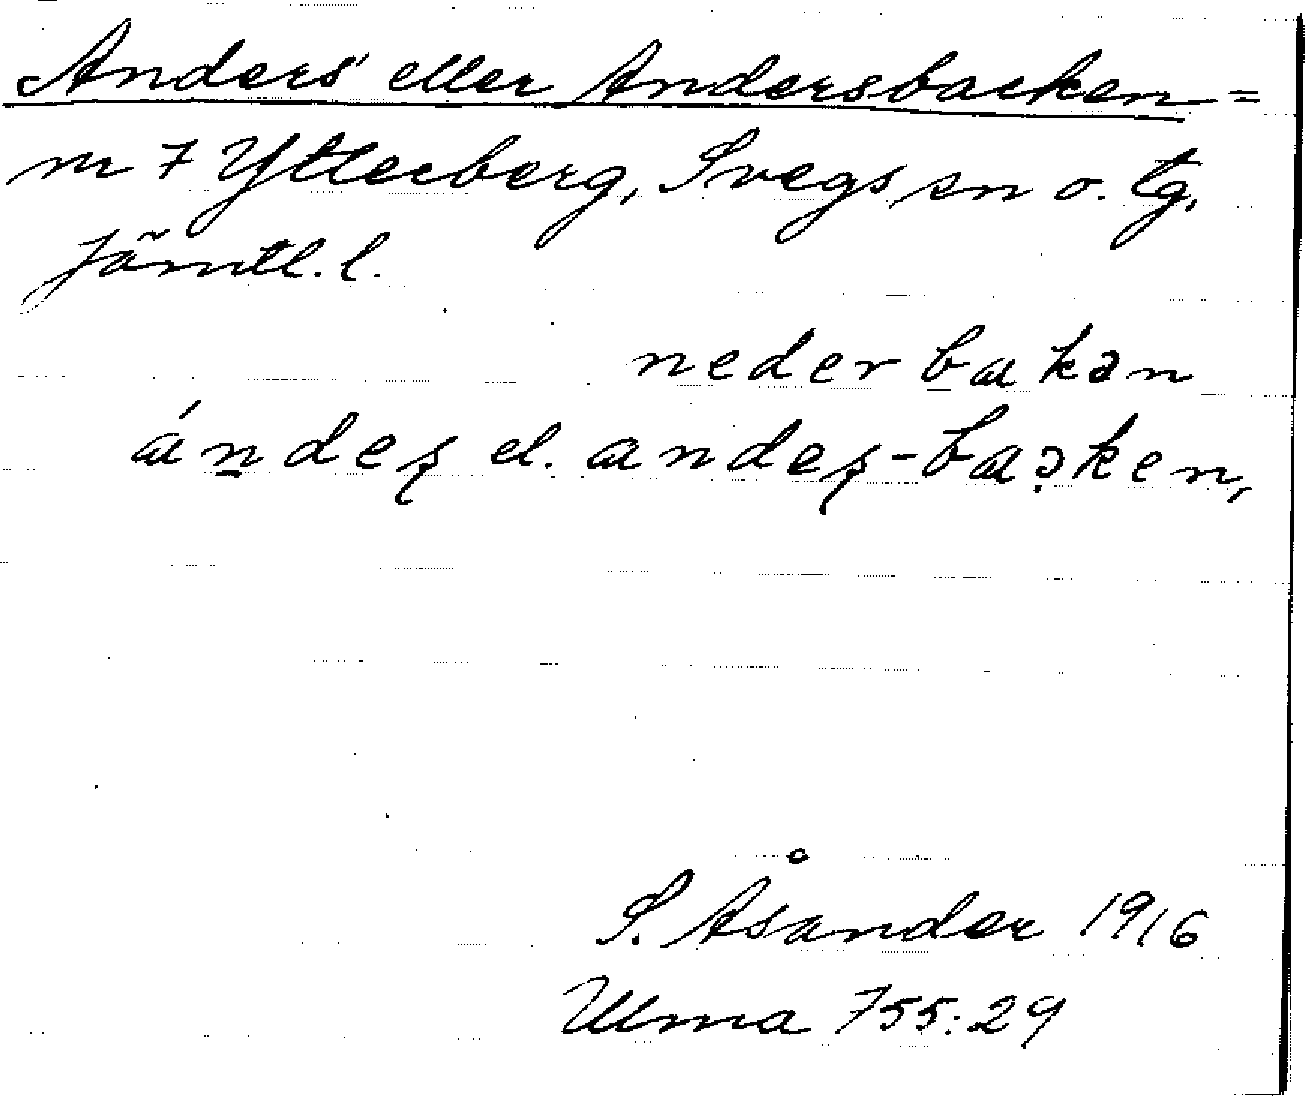 Anders' eller Andersbacken =
nr 7 Ytterberg, Svegs sn o. tg,
Jämtl. l.
neder bakən
ándeʂ el. andeʂ-baəken,
S. Åsander 1916
Ulma 755:29